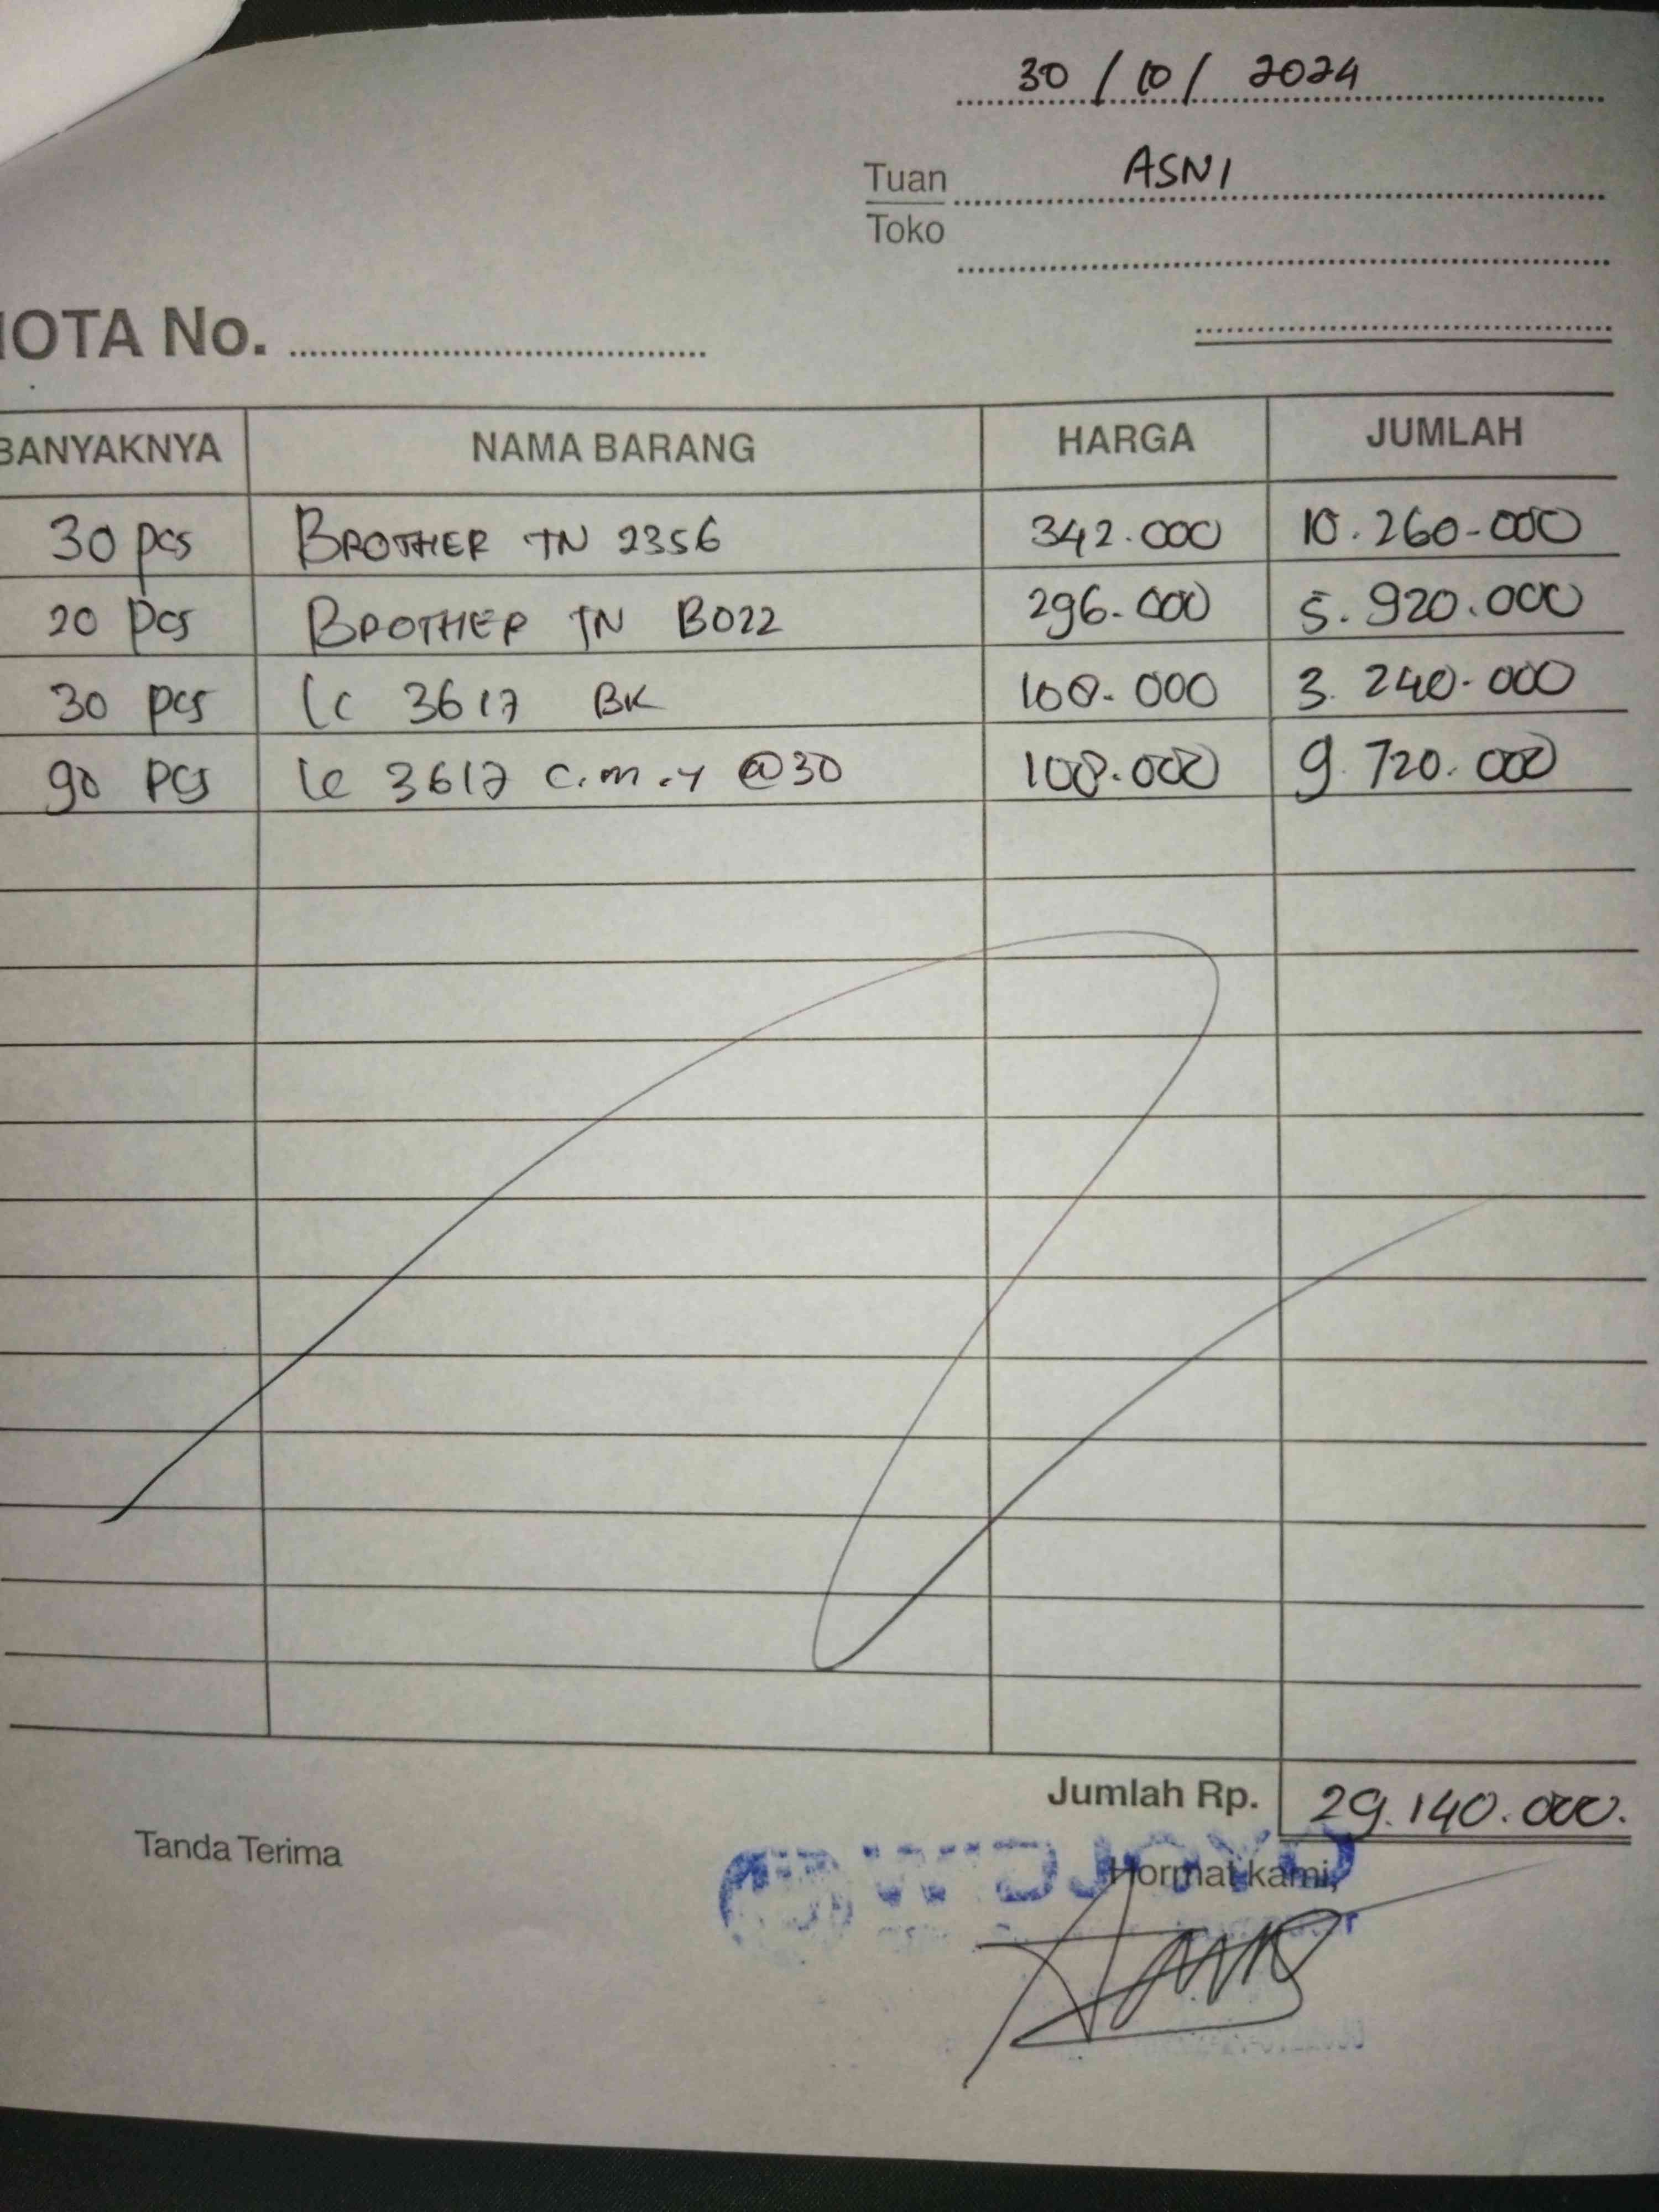 30 / 10 / 2024
Tuan ASNI
Toko
IOTA No.
BANYAKNYA NAMA BARANG HARGA JUMLAH
30 pcs BROTHER TN 2356 342.000 10.260-000
20 pcs BROTHER TN B022 296-000 5.920.000
30 pcs lc 3617 BK 108-000 3.240-000
90 pcs lc 3617 C.m.y @30 108.000 9.720.000
Jumlah Rp. 29.140.000.
Tanda Terima
Hormat kami,